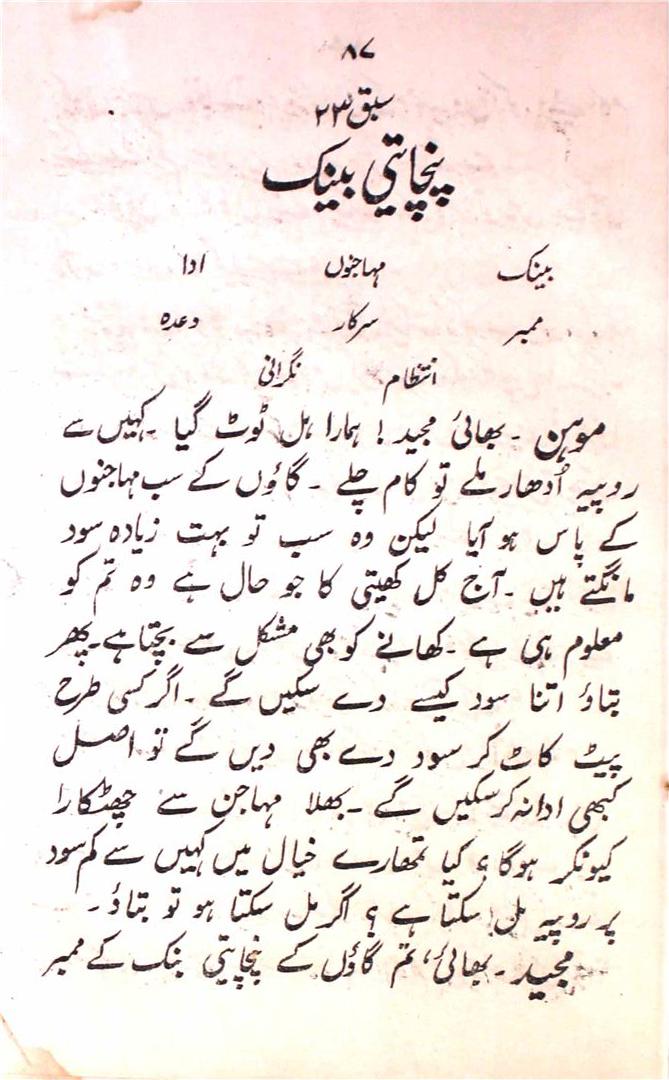 ۸۷
سبق ۲۳
پنچایتی بینک
بینک مہاجنوں ادا
ممبر سرکار وعدہ
انتظام نگرانی
موہن ۔ بھائی مجید ! ہمارا ہل ٹوٹ گیا ۔ کہیں سے
روپیہ اُدھار ملے تو کام چلے ۔ گاؤں کے سب مہاجنوں
کے پاس ہو آیا لیکن وہ سب تو بہت زیادہ سود
مانگتے ہیں ۔ آج کل کھیتی کا جو حال ہے وہ تم کو
معلوم ہی ہے ۔ کھانے کو بھی مشکل سے بچتا ہے ۔ پھر
بتاؤ اتنا سود کیسے دے سکیں گے ۔ اگر کسی طرح
پیٹ کاٹ کر سود دے بھی دیں گے تو اصل
کبھی ادا نہ کر سکیں گے ۔ بھلا مہاجن سے چھٹکارا
کیونکر ہوگا ؟ کیا تمھارے خیال میں کہیں سے کم سود
پر روپیہ مل سکتا ہے ؟ اگر مل سکتا ہو تو بتاؤ ۔
مجید ۔ بھائی، تم گاؤں کے پنچایتی بنک کے ممبر